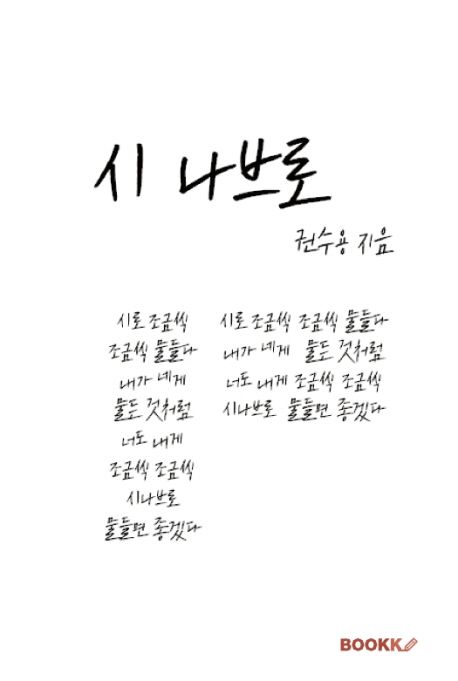 시 나브로
권수용 지음
시로 조금씩
조금씩 물들다
내가 네게
물든 것처럼
너도 내게
조금씩 조금씩
시나브로
물들면 좋겠다
시로 조금씩 조금씩 물들다
내가 네게 물든 것처럼
너도 내게 조금씩 조금씩
시나브로 물들면 좋겠다
BOOKK